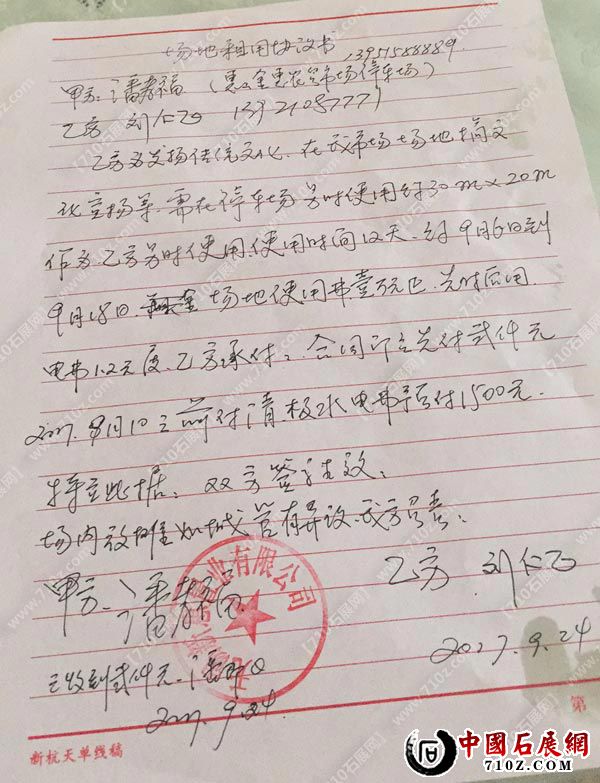 场地租用协议书
13951588889.
甲方: 潘寿福 (惠 农贸市场停车场)
乙方 刘仁
乙方为发扬传统文化, 在我市场场地搞文
化 , 需在停车场 时使用约30m×20m
作为乙方 时使用, 使用时间12天. 约9月6日到
9月18日. 场地使用费壹万元正, 先付后用.
电费1.2元度, 乙方承付; 合同订立先付贰仟元
月10 前付清. 水电费预付1500元.
特立此据; 双方签字生效;
场内放摊如城管有异议, 我方负责;
甲方: 潘寿福
乙方 刘仁
2017.9.24
已收到贰仟元. 潘
2017.9.24
业有限公司
新杭天单线稿
第
中國石展網
7102.COM
7102石展网